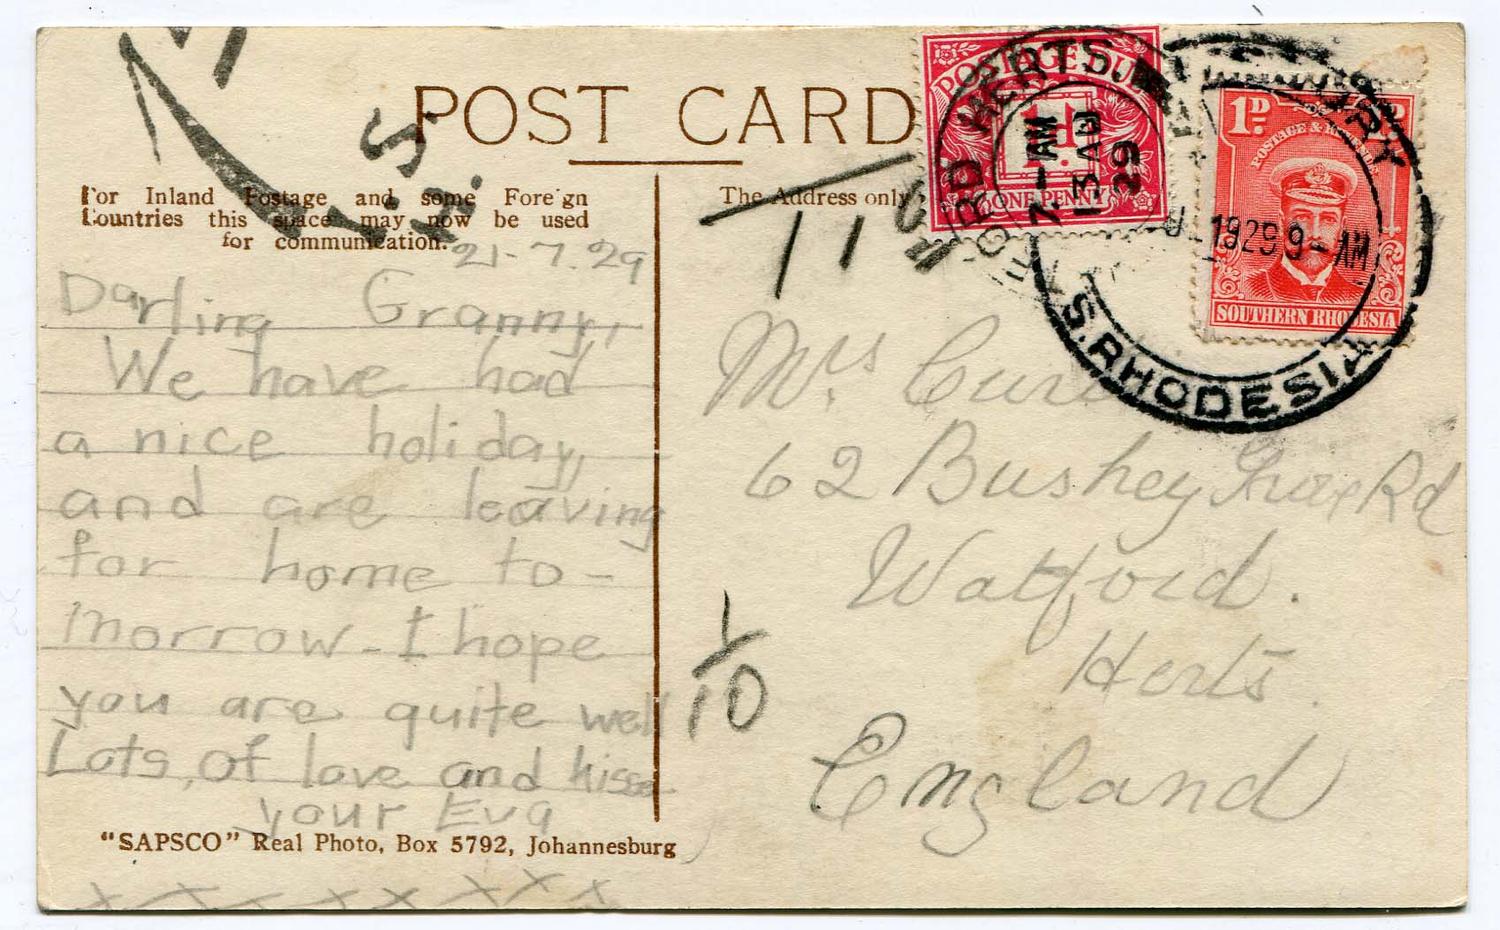 POST CARD
For Inland Postage and some Foreign
Countries this space may now be used
for communication.
The Address only
21-7.29
Darling Granny,
We have had
a nice holiday,
and are leaving
for home to-
morrow - I hope
you are quite well
Lots of love and kisses
your Eva
x x x x x x x x
"SAPSCO" Real Photo, Box 5792, Johannesburg
T
I.S.
11
1
10
Mrs
62 Bushey Grove Rd
Watford.
Herts.
England
POSTAGE DUE
1d.
ONE PENNY
WATFORD HERTS.
7 - AM
13 AU
29
1D.
POSTAGE & REVENUE
SOUTHERN RHODESIA
1929 9 - AM
S. RHODESIA